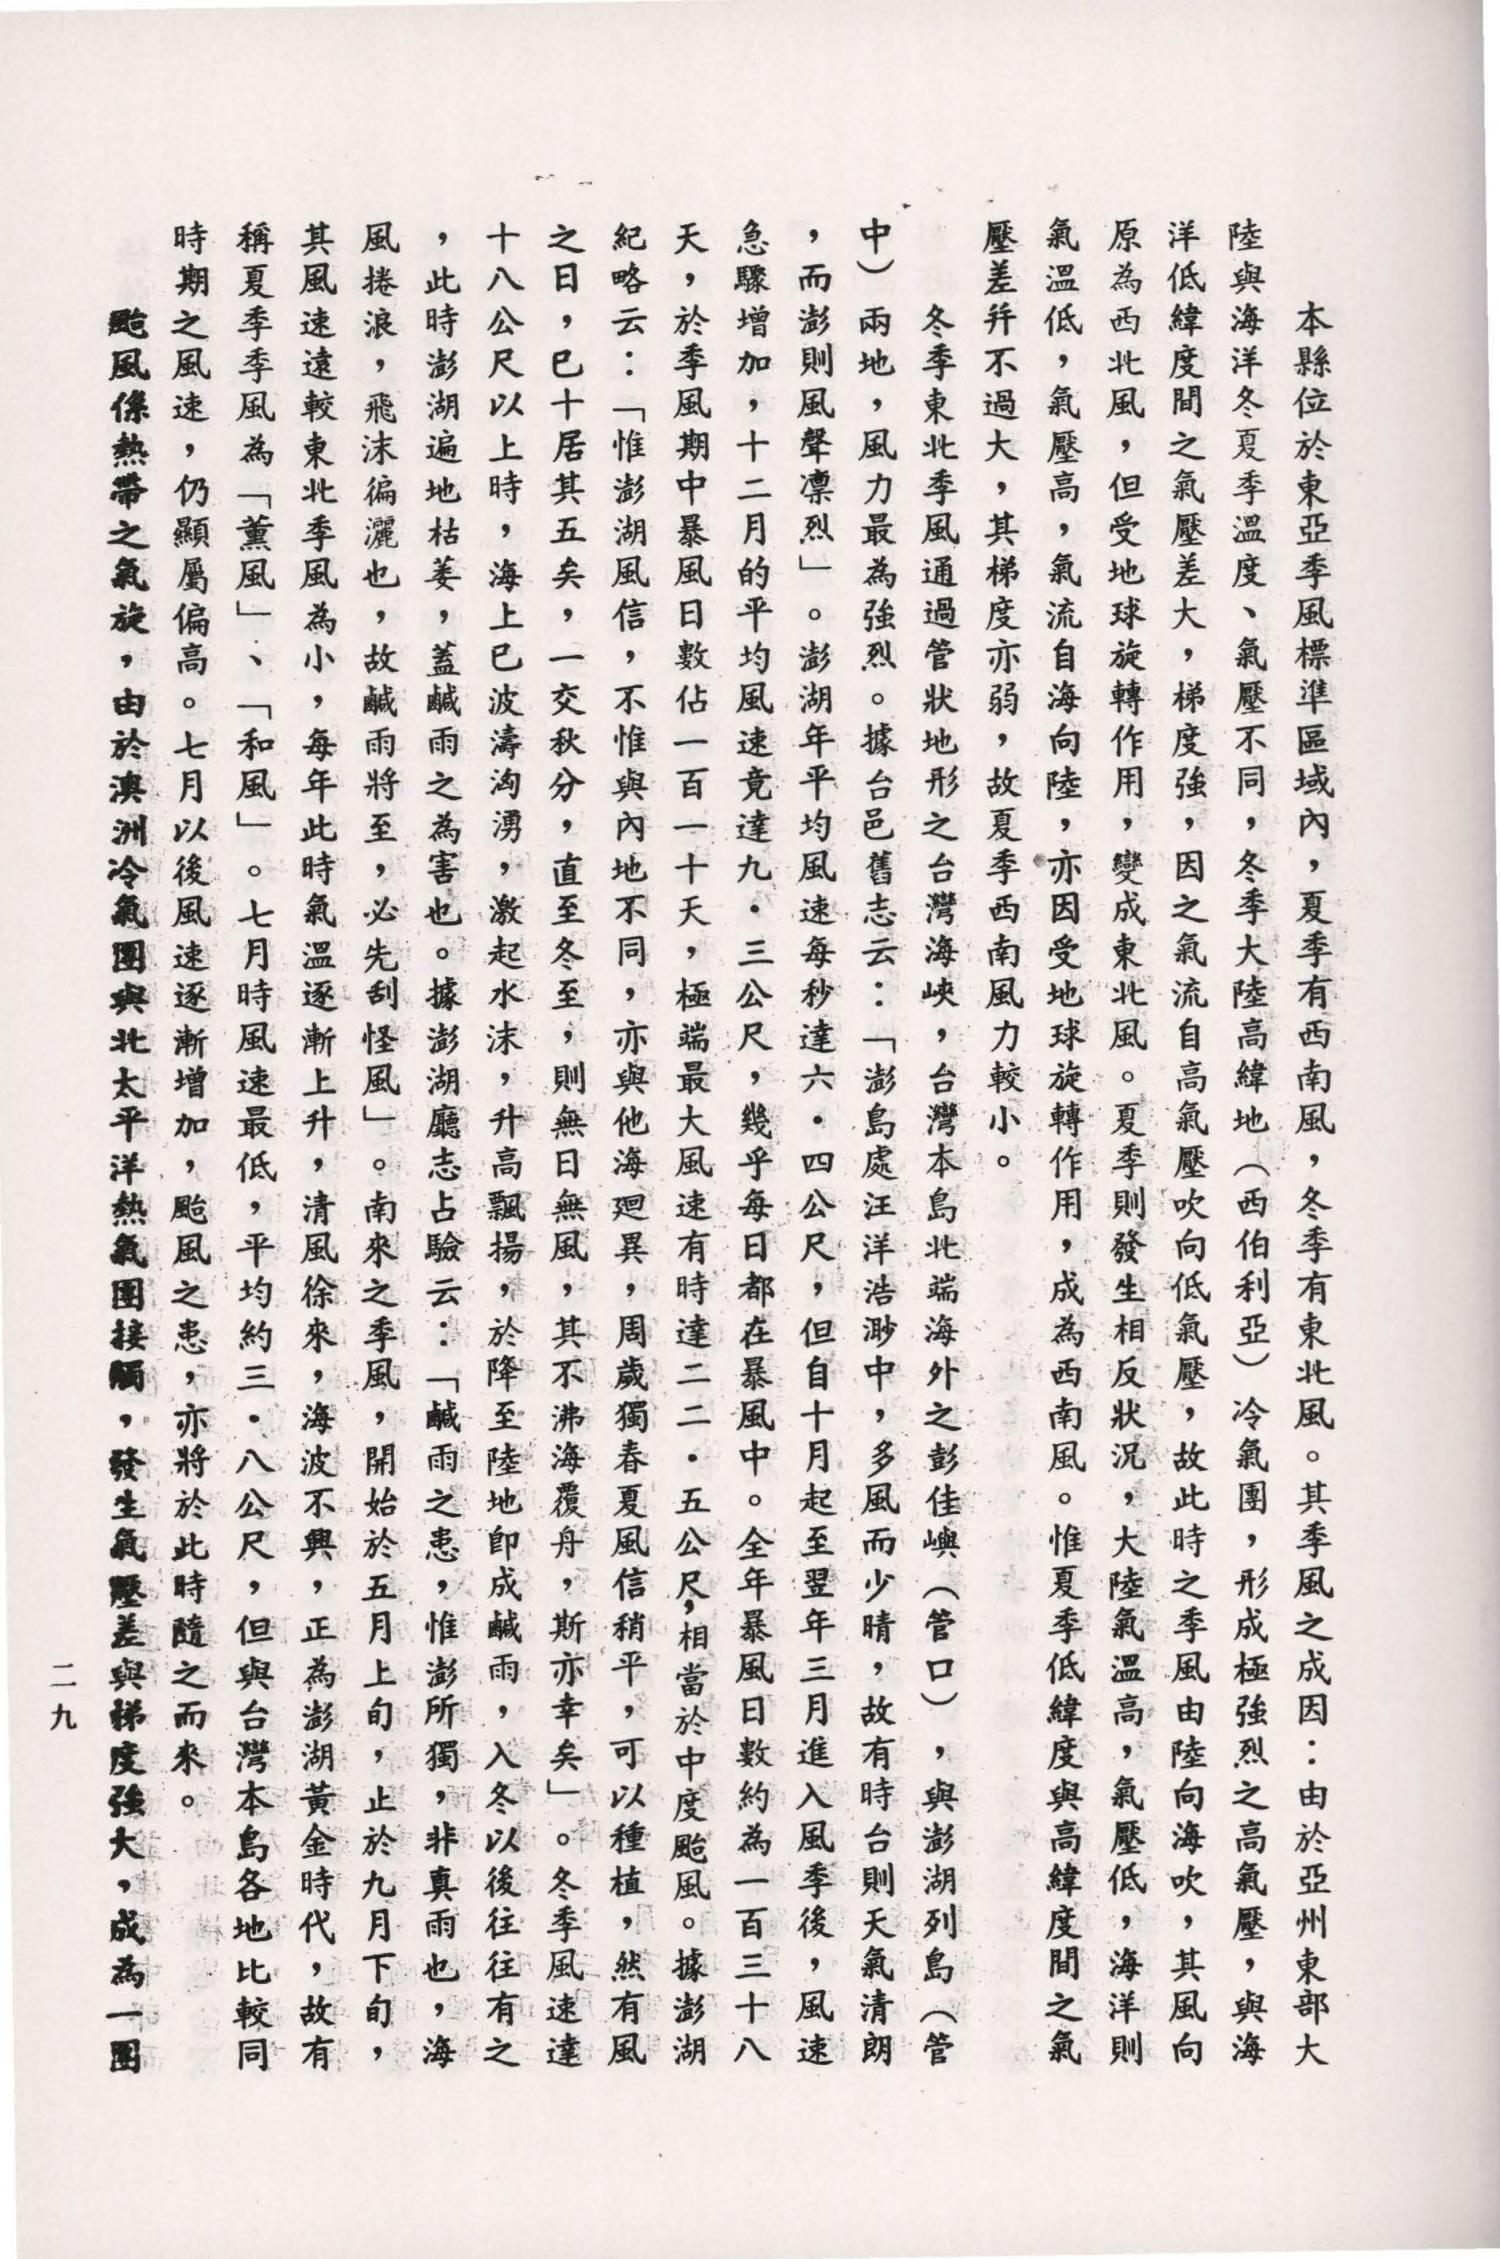 本縣位於東亞季風標準區域內，夏季有西南風，冬季有東北風。其季風之成因：由於亞州東部大
陸與海洋冬夏季溫度、氣壓不同，冬季大陸高緯地（西伯利亞）冷氣團，形成極強烈之高氣壓，與海
洋低緯度間之氣壓差大，梯度強，因之氣流自高氣壓吹向低氣壓，故此時之季風由陸向海吹，其風向
原為西北風，但受地球旋轉作用，變成東北風。夏季則發生相反狀況，大陸氣溫高，氣壓低，海洋則
氣溫低，氣壓高，氣流自海向陸，亦因受地球旋轉作用，成為西南風。惟夏季低緯度與高緯度間之氣
壓差幷不過大，其梯度亦弱，故夏季西南風力較小。
冬季東北季風通過管狀地形之台灣海峽，台灣本島北端海外之彭佳嶼（管口），與澎湖列島（管
中）兩地，風力最為強烈。據台邑舊志云：「澎島處汪洋浩渺中，多風而少晴，故有時台則天氣清朗
，而澎則風聲凛烈」。澎湖年平均風速每秒達六・四公尺，但自十月起至翌年三月進入風季後，風速
急驟增加，十二月的平均風速竟達九・三公尺，幾乎每日都在暴風中。全年暴風日數約為一百三十八
天，於季風期中暴風日數佔一百一十天，極端最大風速有時達二二・五公尺，相當於中度颱風。據澎湖
紀略云：「惟澎湖風信，不惟與內地不同，亦與他海廻異，周歲獨春夏風信稍平，可以種植，然有風
之日，已十居其五矣，一交秋分，直至冬至，則無日無風，其不沸海覆舟，斯亦幸矣」。冬季風速達
十八公尺以上時，海上已波濤洶湧，激起水沫，升高飄揚，於降至陸地卽成鹹雨，入冬以後往往有之
，此時澎湖遍地枯萎，蓋鹹雨之為害也。據澎湖廳志占驗云：「鹹雨之患，惟澎所獨，非真雨也，海
風捲浪，飛沫徧灑也，故鹹雨將至，必先刮怪風」。南來之季風，開始於五月上旬，止於九月下旬，
其風速遠較東北季風為小，每年此時氣溫逐漸上升，清風徐來，海波不興，正為澎湖黃金時代，故有
稱夏季季風為「薰風」、「和風」。七月時風速最低，平均約三・八公尺，但與台灣本島各地比較同
時期之風速，仍顯屬偏高。七月以後風速逐漸增加，颱風之患，亦將於此時隨之而來。
颱風係熱帶之氣旋，由於澳洲冷氣團與北太平洋熱氣團接觸，發生氣壓差與梯度強大，成為一團
二九